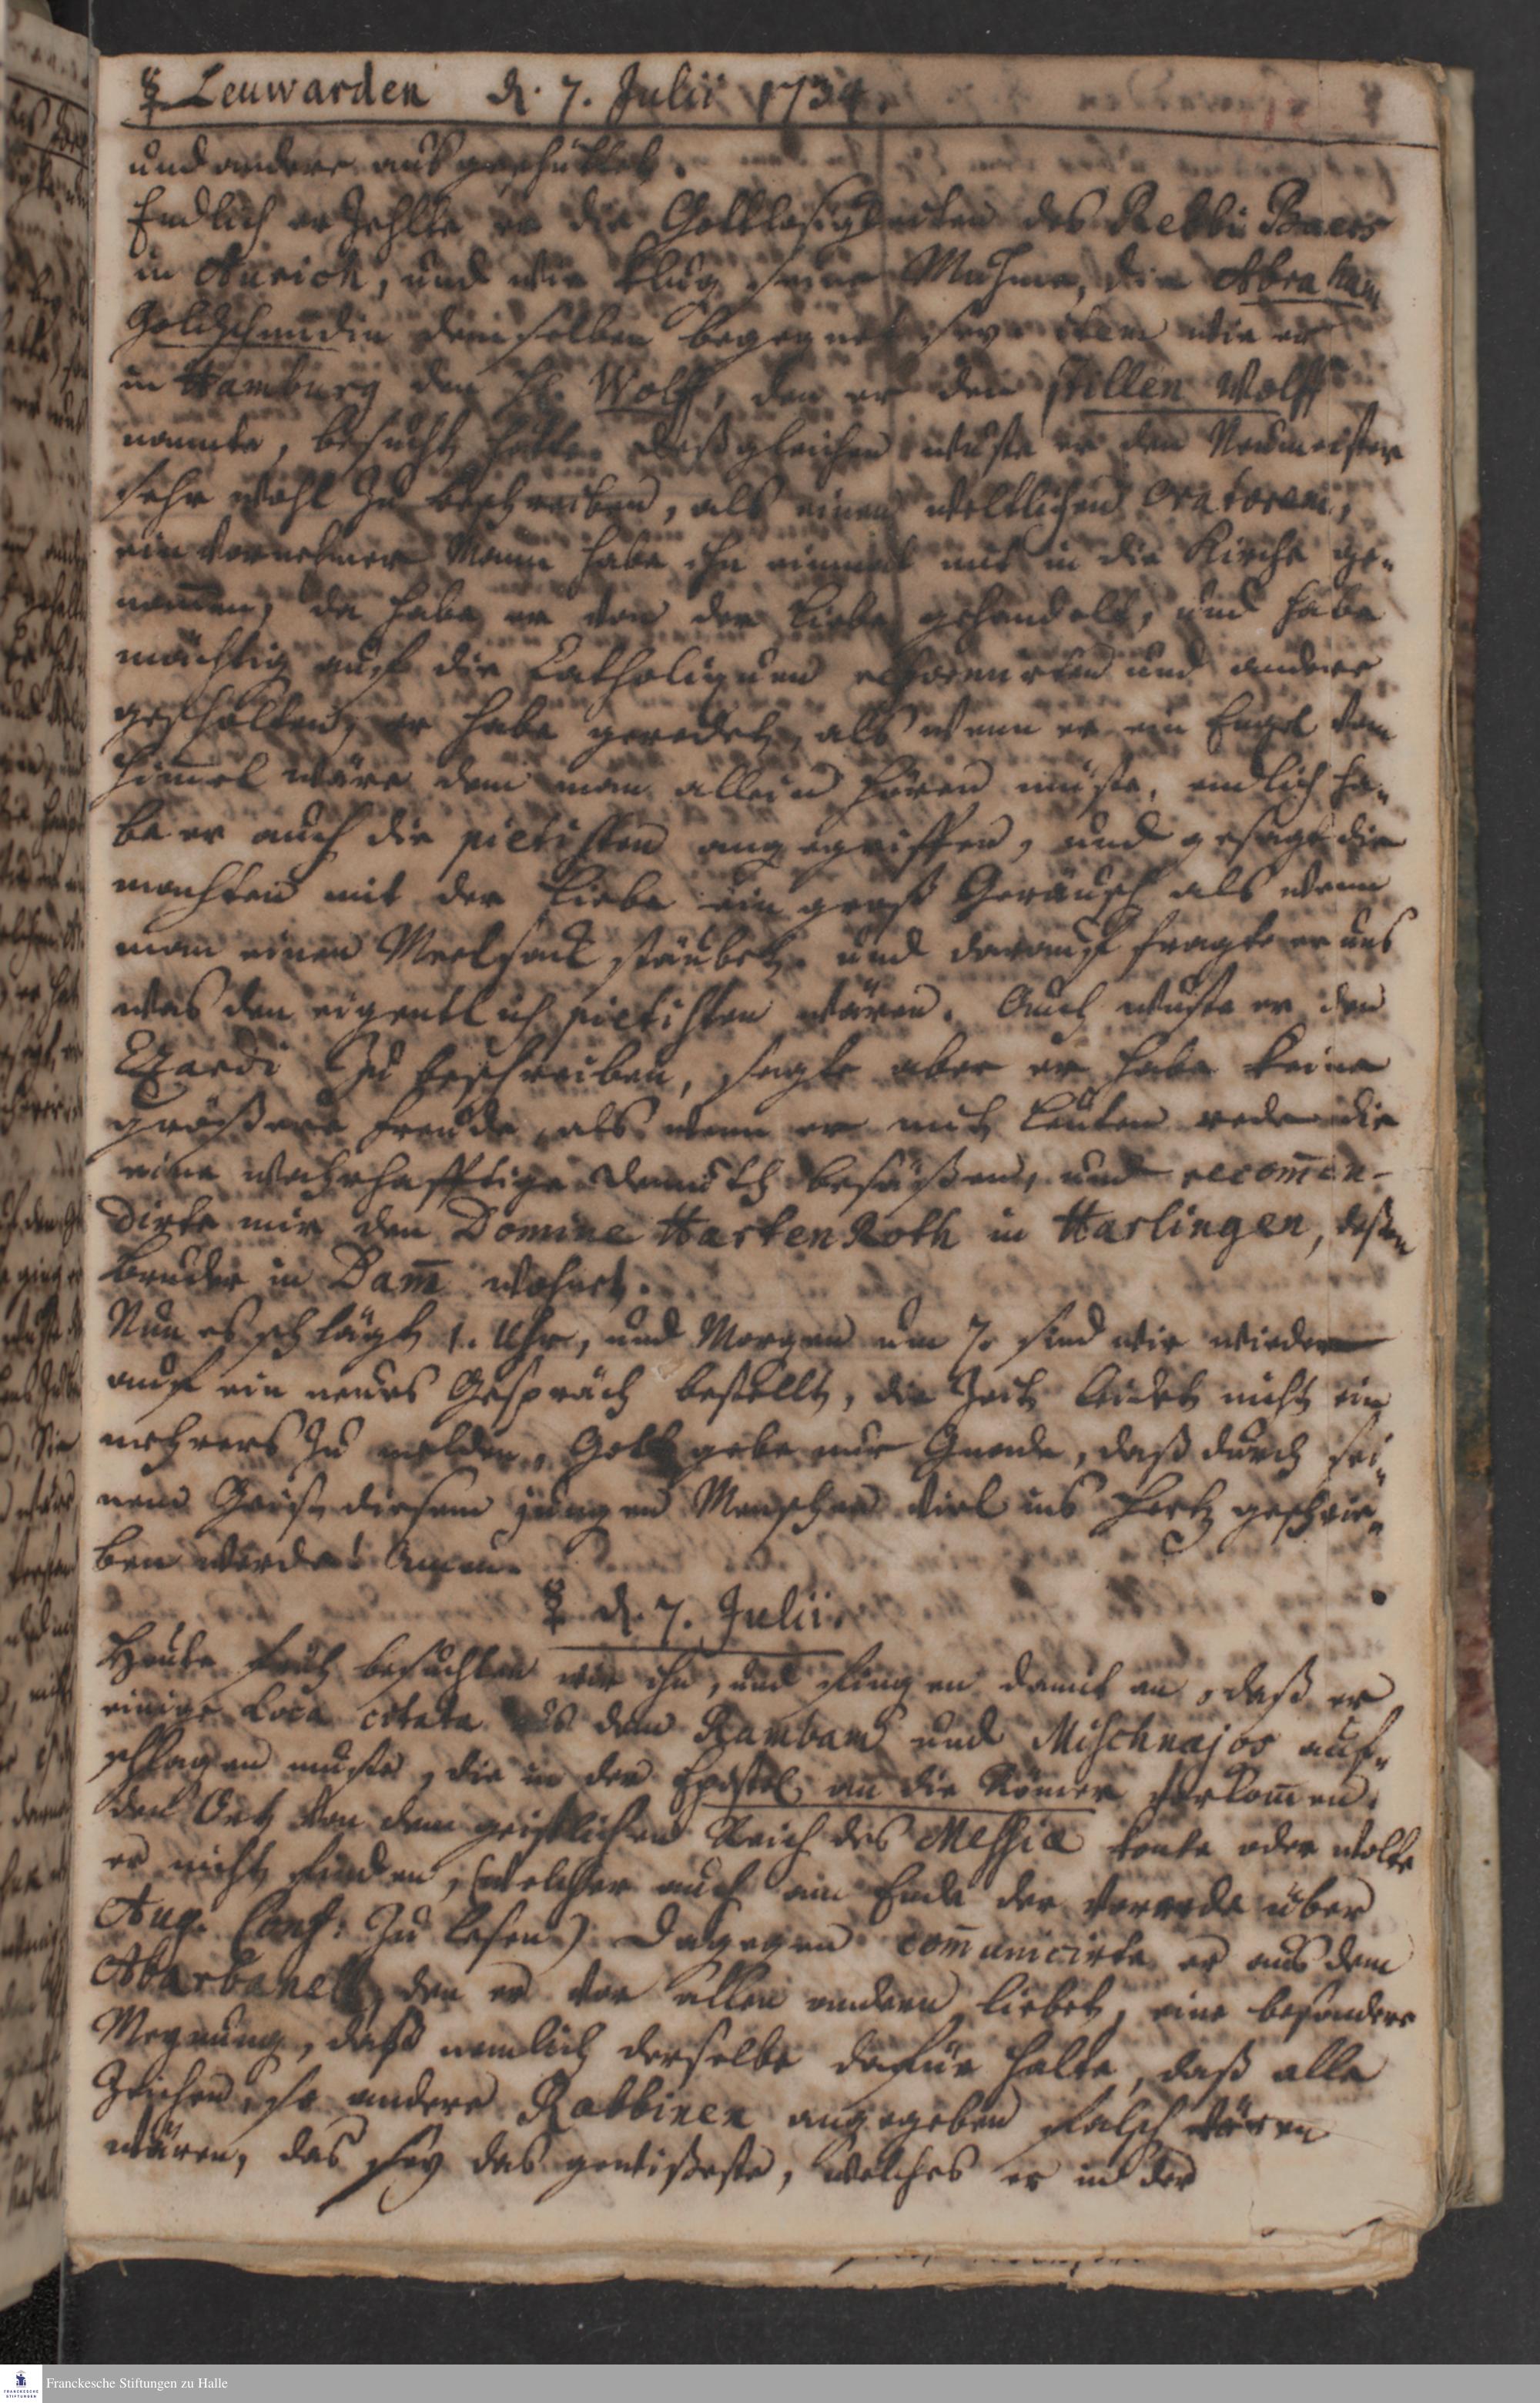 ☿ Leuwarden d. 7. Julii 1734.
und andere ausgeschüttet.
Endlich erzehlte er die Gottlosigkeiten des Rebbi Baers
in Aurich, und wie klug seine Muhme, die Abraham
Goldschmidin demselben begegnet sey. item wie er
in Hamburg den H. Wolff, den er den stillen Wolff
nannte, besucht hätte. deßgleichen wuste er den Neumeister
sehr wohl zu beschreiben, als einen weltlichen Oratorem,
ein vornehmer Mann habe ihn einmal mit in die Kirche ge-
nom̄en, da habe er von der Liebe gehandelt, und habe
mächtig auf die Catholiquen reformirten und andere
gescholten, er habe geredet, als wenn er ein Engel vom
Him̄el wäre dem man allein hören müste, endlich ha-
be er auch die pietisten angegriffen, und gesagt die
machten mit der Liebe ein groß Geräusch als wenn
man einen Meelsack stäubet. und darauf fragte er uns
was den eigentlich pietisten wären. Auch wuste er den
Ezardi zu beschreiben, sagte aber er habe keine
größere Freude, als wenn er mit Leuten rede die
eine wahrhafftige Demuth besäßen, und recom̄en-
dirte mir den Domine HartenRoth in Harlingen, deßen
Bruder in Dam̄ wohnet.
Nun es schlägt 1. Uhr, und Morgen um 7. sind wir wieder
auf ein neues Gespräch bestellt, die Zeit leidet nicht ein
mehrers zu melden, Gott gebe nur Gnade, daß durch sei-
nen Geist diesem jungen Menschen viel ins Hertz geschrie-
ben werde! Amen.
☿ d. 7. Julii.
Heute früh besuchten wir ihn, und fingen damit an, daß er
einige Loca citata aus dem Rambam und Mischnajos auf-
schlagen muste, die in der Epistel an die Römer vorkom̄en.
den Ort von dem geistlichen Reich des Messiæ konte oder wolte
er nicht finden, (welcher auch am Ende der Vorrede über
Aug. Conf. zu lesen) Dagegen com̄unicirte er aus dem
Abarbanell, den er vor allen andern liebet, eine besondere
Meynung, daß nemlich derselbe dafür halte, daß alle
Zeichen, so andere Rabbinen angegeben falsch wären
wären, das sey das gewißeste, welches er in der
Franckesche Stiftungen zu Halle